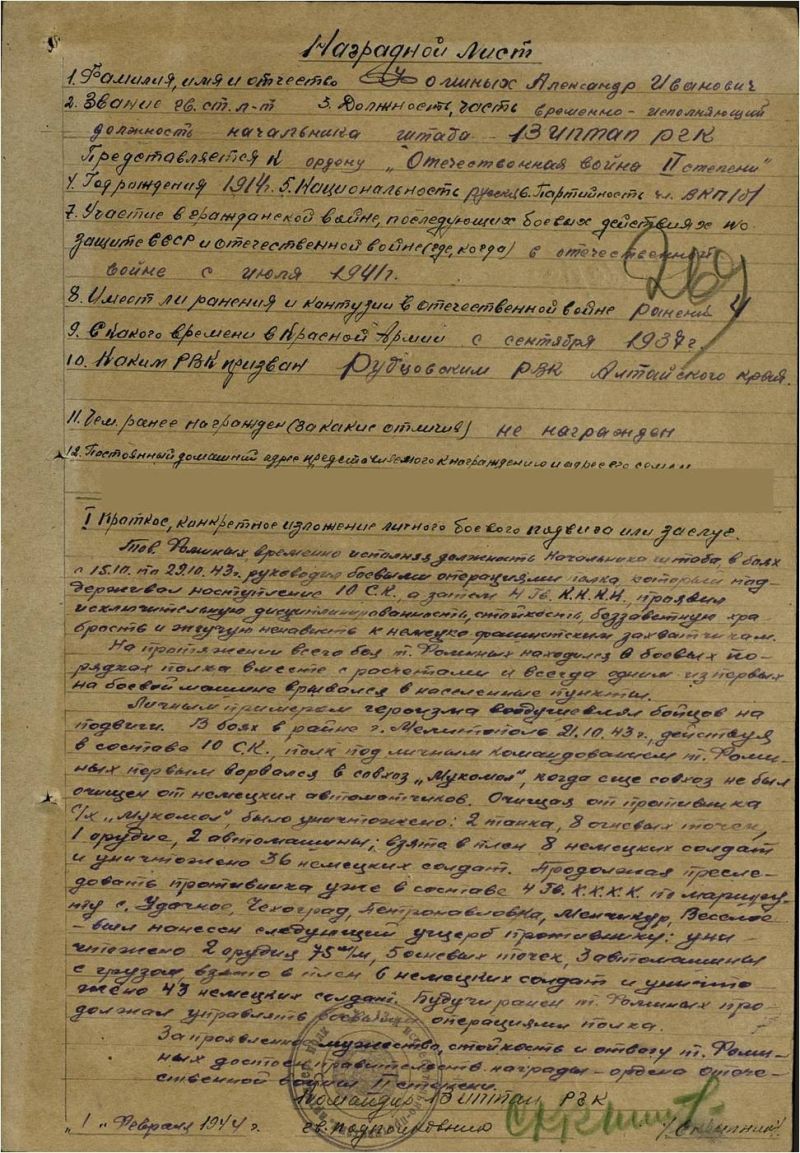 Наградной лист
1. Фамилия, имя и отчество Фоминых Александр Иванович
2. Звание гв. ст. л-т 3. Должность, часть временно-исполняющий
должность начальника штаба 13 иптап РГК
Представляется к ордену „Отечественная война II степени"
4. Год рождения 1914г. 5. Национальность русский 6. Партийность чл. ВКП/б/
7. Участие в гражданской войне, последующих боевых действиях по
защите СССР и отечественной войне (где, когда) в отечественной
войне с июля 1941г.
269
8. Имеет ли ранения и контузии в отечественной войне ранений 4
9. С какого времени в Красной Армии с сентября 1937г.
10. Каким РВК призван Рубцовским РВК Алтайского края.
11. Чем ранее награжден (за какие отличия) не награжден
12. Постоянный домашний адрес представляемого к награждению и адрес его семьи
I Краткое, конкретное изложение личного боевого подвига или заслуг.
Тов. Фоминых, временно исполняя должность Начальника штаба, в боях
с 15.10. по 29.10.43г. руководил боевыми операциями полка, который под-
держивал наступление 10 СК, а затем 4 Гв. К.К.К.К., проявил
исключительную дисциплинированность, стойкость, беззаветную хра
брость и жгучую ненависть к немецко фашистским захватчикам.
На протяжении всего боя т. Фоминых находился в боевых по-
рядках полка вместе с расчетами и всегда одним из первых
на боевой машине врывался в населенные пункты.
Личным примером героизма воодушевлял бойцов на
подвиги. В боях в районе г. Мелитополь 21.10.43г., действуя
в составе 10 С.К., полк под личным командованием т. Фоми-
ных первым ворвался в совхоз „Мукомол", когда еще совхоз не был
очищен от немецких автоматчиков. Очищая от противника
с/х „Мукомол" было уничтожено: 2 танка, 8 огневых точек,
1 орудие, 2 автомашины; взято в плен 8 немецких солдат
и уничтожено 36 немецких солдат. Продолжая пресле-
довать противника уже в составе 4 Гв. К.К.К.К. по маршру-
ту с. Удачное, Чехоград, Петропавловка, Менчикур, Веселое
- был нанесен следующий ущерб противнику: уни-
чтожено 2 орудия 75 м/м, 5 огневых точек, 3 автомашины
с грузом взято в плен 6 немецких солдат и уничто
жено 43 немецких солдат. Будучи ранен т. Фоминых про-
должал управлять боевыми операциями полка.
За проявленное мужество, стойкость и отвагу т. Фоми-
ных достоен правительств. награды - ордена отече-
ственной войны II степени.
Командир 13 иптап РГК
„1" Февраля 1944г. гв. подполковник /Скрипник/